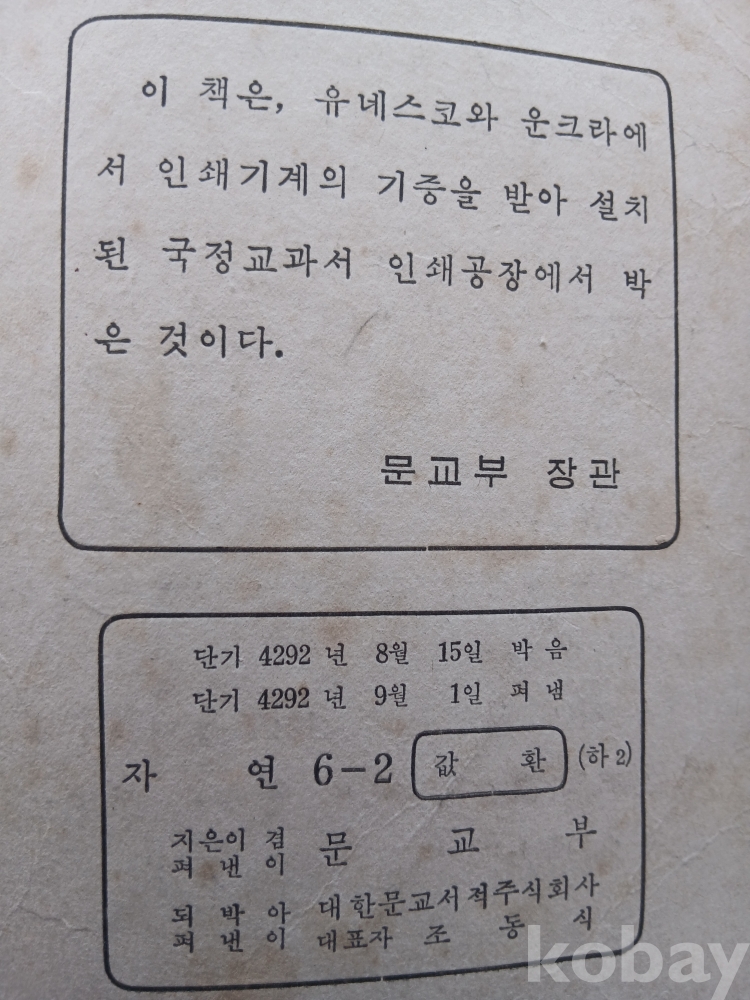 이 책은, 유네스코와 운크라에
서 인쇄기계의 기증을 받아 설치
된 국정교과서 인쇄공장에서 박
은 것이다.
문교부 장관
단기 4292 년 8월 15일 박음
단기 4292 년 9월 1일 펴냄
자 연 6-2 값 환 (하2)
지은이 겸
펴 낸 이 문 교 부
되 박 아 대한문교서적주식회사
펴 낸 이 대표자 조 동 식
kobay